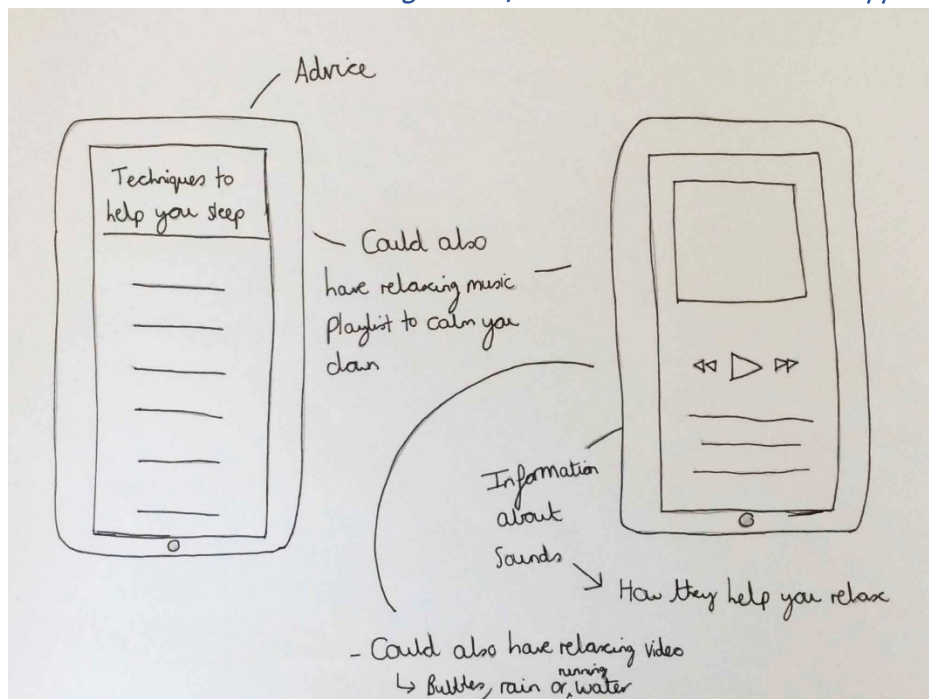 Advice
Techniques to
help you sleep
Could also
have relaxing music
playlist to calm you
down
Information
about
Sounds
How they help you relax
- Could also have relaxing video
↳ Bubbles, rain or running water